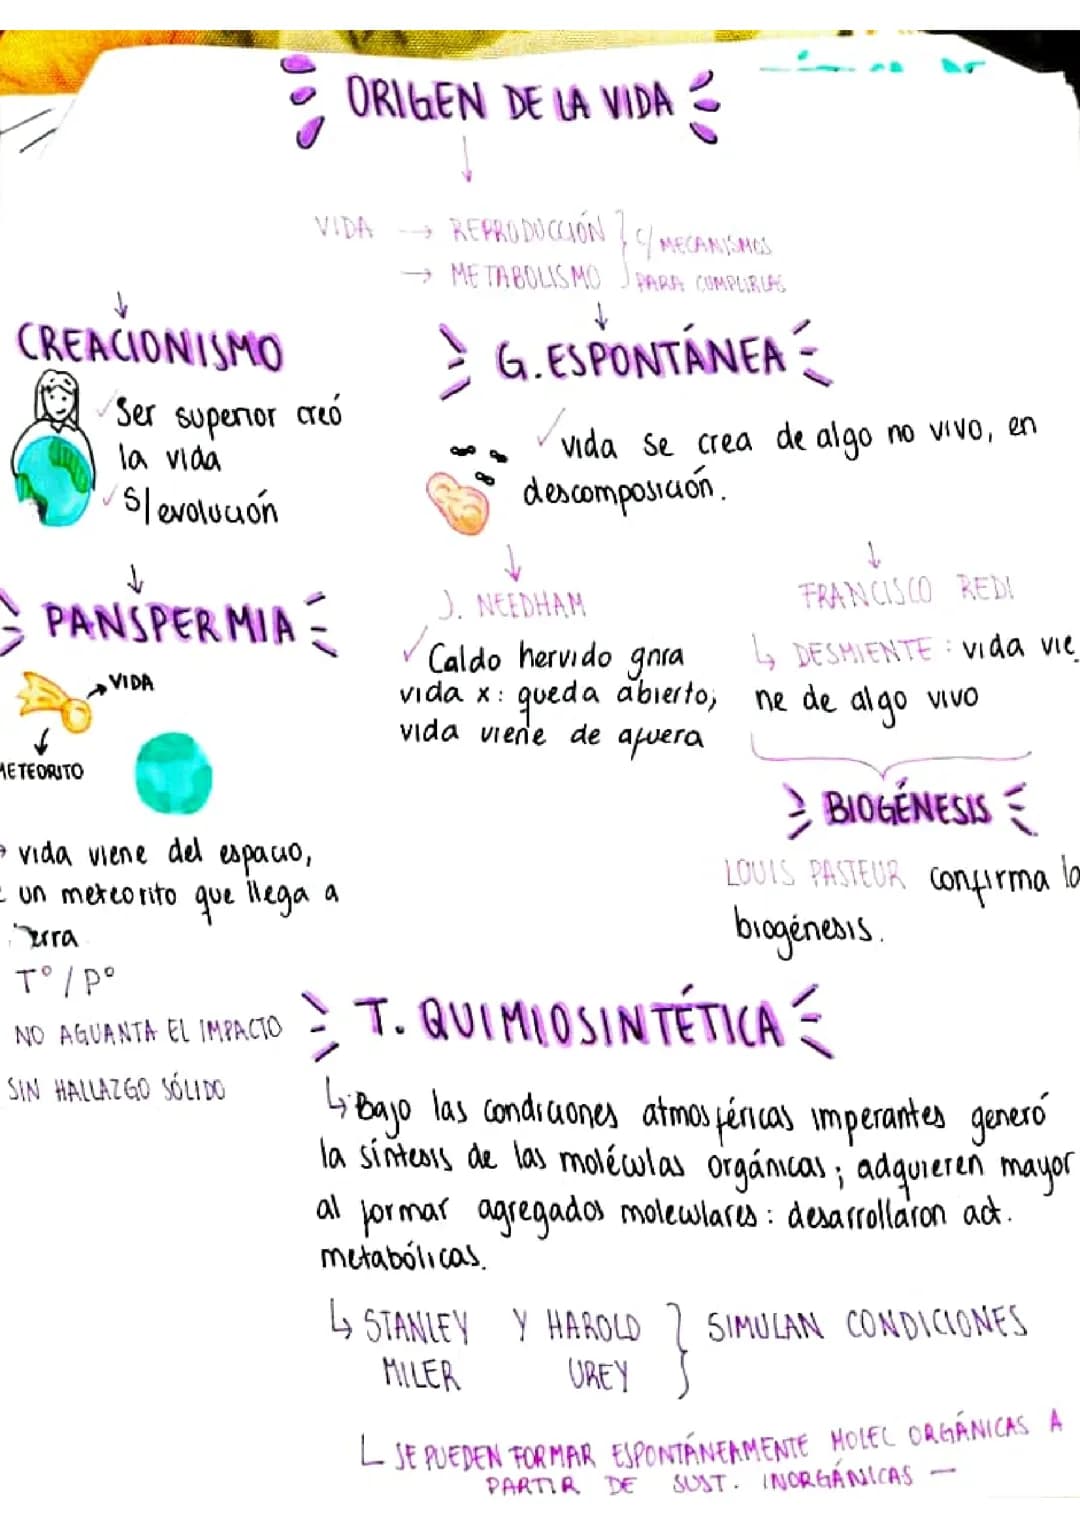 ORIGEN DE LA VIDA
VIDA → REPRODUCCIÓN
→ METABOLISMO
C/ MECANISMOS
PARA CUMPLIRLAS
CREACIONISMO
Ser superior creó
la vida
S/ evolución
G. ESPONTÁNEA
vida se crea de algo no vivo, en
descomposición.
J. NEEDHAM
Caldo hervido gnra
vida x: queda abierto;
vida viene de afuera
FRANCISCO REDI
↳ DESMIENTE: vida vie
ne de algo vivo
BIOGÉNESIS
LOUIS PASTEUR confirma la
biogénesis.
PANSPERMIA
→ VIDA
METEORITO
→ vida viene del espacio,
un meteorito que llega a
T°/P°
NO AGUANTA EL IMPACTO
SIN HALLAZGO SÓLIDO
T. QUIMIOSINTÉTICA
↳ Bajo las condiciones atmosféricas imperantes generó
la síntesis de las moléculas orgánicas; adquieren mayor
al formar agregados moleculares: desarrollaron act.
metabólicas.
↳ STANLEY Y HAROLD
MILER UREY
SIMULAN CONDICIONES
SE PUEDEN FORMAR ESPONTÁNEAMENTE MOLEC ORGÁNICAS A
PARTIR DE SUST. INORGÁNICAS —